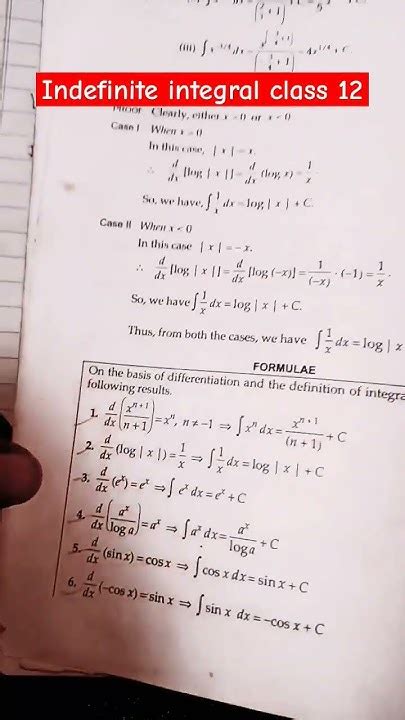 (iii) ∫ x^(-3/4) dx = x^(-3/4 + 1) / (-3/4 + 1) = 4x^(1/4) + C
Indefinite integral class 12
Clearly, either x > 0 or x < 0
Case I When x > 0
In this case, | x | = x.
∴ d/dx [log | x |] = d/dx (log x) = 1/x.
So, we have, ∫ 1/x dx = log | x | + C.
Case II When x < 0
In this case | x | = –x.
∴ d/dx [log | x |] = d/dx [log (–x)] = 1/(–x) · (–1) = 1/x.
So, we have ∫ 1/x dx = log | x | + C.
Thus, from both the cases, we have ∫ 1/x dx = log | x
FORMULAE
On the basis of differentiation and the definition of
following results.
1. d/dx (x^(n+1)/(n+1)) = x^n, n ≠ –1 ⇒ ∫ x^n dx = x^(n+1)/(n+1) + C
2. d/dx (log | x |) = 1/x ⇒ ∫ 1/x dx = log | x | + C
3. d/dx (e^x) = e^x ⇒ ∫ e^x dx = e^x + C
4. d/dx (a^x/log a) = a^x ⇒ ∫ a^x dx = a^x/log a + C
5. d/dx (sin x) = cos x ⇒ ∫ cos x dx = sin x + C
6. d/dx (–cos x) = sin x ⇒ ∫ sin x dx = –cos x + C